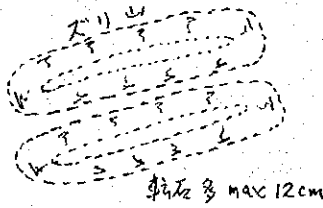 ズリ山
転石多 max 12cm